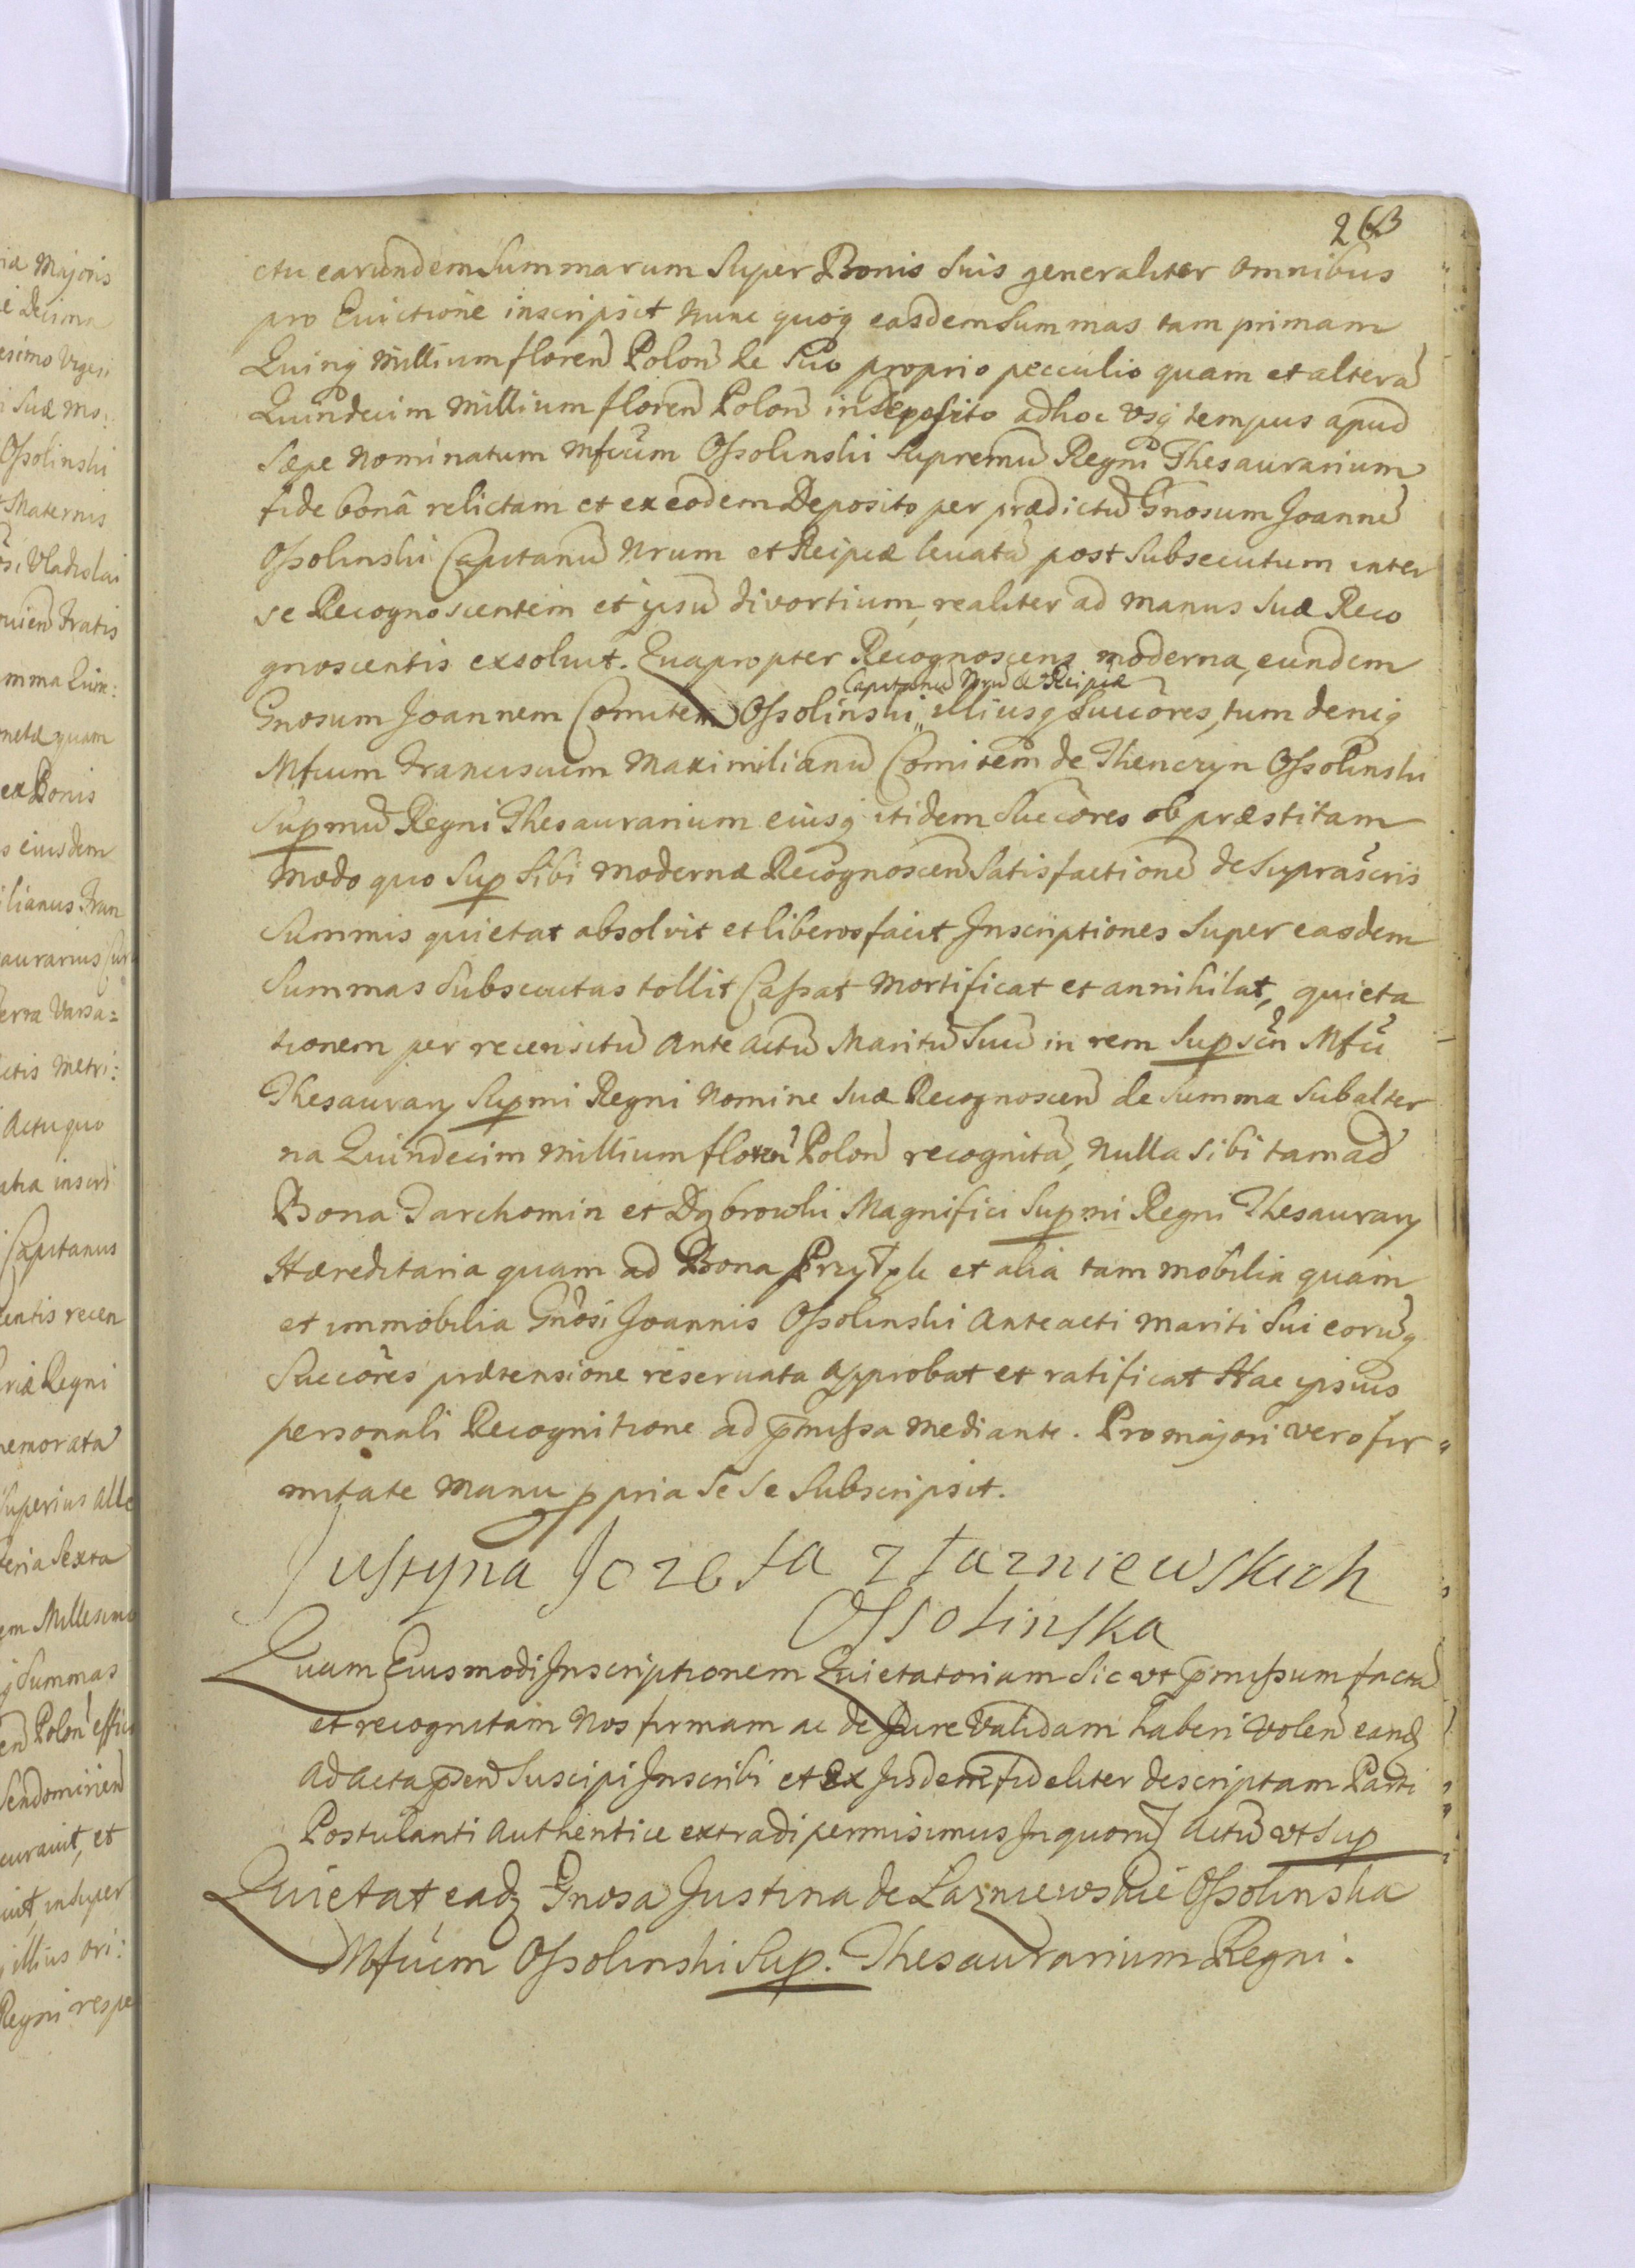 263
ctu earundem Summarum Super Bonis Suis generaliter omnibus
pro Evictione inscripsit nunc quoq easdem Summas tam primam
Quinq Millium floren Polon de Suo proprio pecculio quam et altera
Quindecim Millium floren Polon in Deposito adhoc usq tempus apud
Sæpe Nominatum Mfcum Ossolinski Supremu Regni Thesaurarium
fide bonâ relictam et ex eodem Deposito per prædictu Gnosum Joanne
Ossolinski Capitanu Nrum et Reipcæ levata post Subsecutum inter
se Recognoscentem et ipsu divortium, realiter ad manus Suæ Reco
gnoscentis exsolvit. Quapropter Recognoscens moderna, eundem
Capitanu Nru et Reipcæ
Gnosum Joannem Comitem Ossolinski, illiusq Succores, tum deniq
Mfcum Franciscum Maximilianu Comitem de Thenczyn Ossolinski
Supmu Regni Thesaurarium eiusq itidem Succores ob præstitam
modo quo Sup Sibi modernæ Recognoscen Satisfactione de Suprascris
Summis quietat absolvit et liberos facit Inscriptiones Super easdem
Summas Subsecutas tollit Cassat Mortificat et annihilat, quieta
tionem per recensitu Ante actu Maritu Suu in rem Supscn Mfci
Thesaurary Supmi Regni Nomine Suæ Recognoscen de Summa Subalter
na Quindecim Millium floren Polon recognita, Nulla Sibi tam ad
Bona Tarchomin et Dąbrowki Magnifici Supmi Regni Thesaurary
Hæreditaria quam ad Bona Przytyk et alia tam mobilia quam
et immobilia Gnosi Joannis Ossolinski Anteacti Mariti Sui eorūq
Succores prætensione reservata approbat et ratificat Hac ipsius
personali Recognitione ad pmissa mediante. Pro majori vero fir
mitate Manu ppria Se Se Subscripsit.
Justyna Jozefa z Łazniewskich
Ossolinska
Quam Eiusmodi Inscriptionem Quietatoriam Sic ut pmissum facta
et recognitam Nos firmam ac de Jure Validam haberi Volen eand
Ad Acta psen Suscipi Inscribi et Ex Iisdem fideliter descriptam Parti
Postulanti Authentice extradi permisimus In quoru Actu ut Sup
Quietat ead Gnosa Justina de Lazniewskie Ossolinska
Mfcum Ossolinski Sup. Thesaurarium Regni.